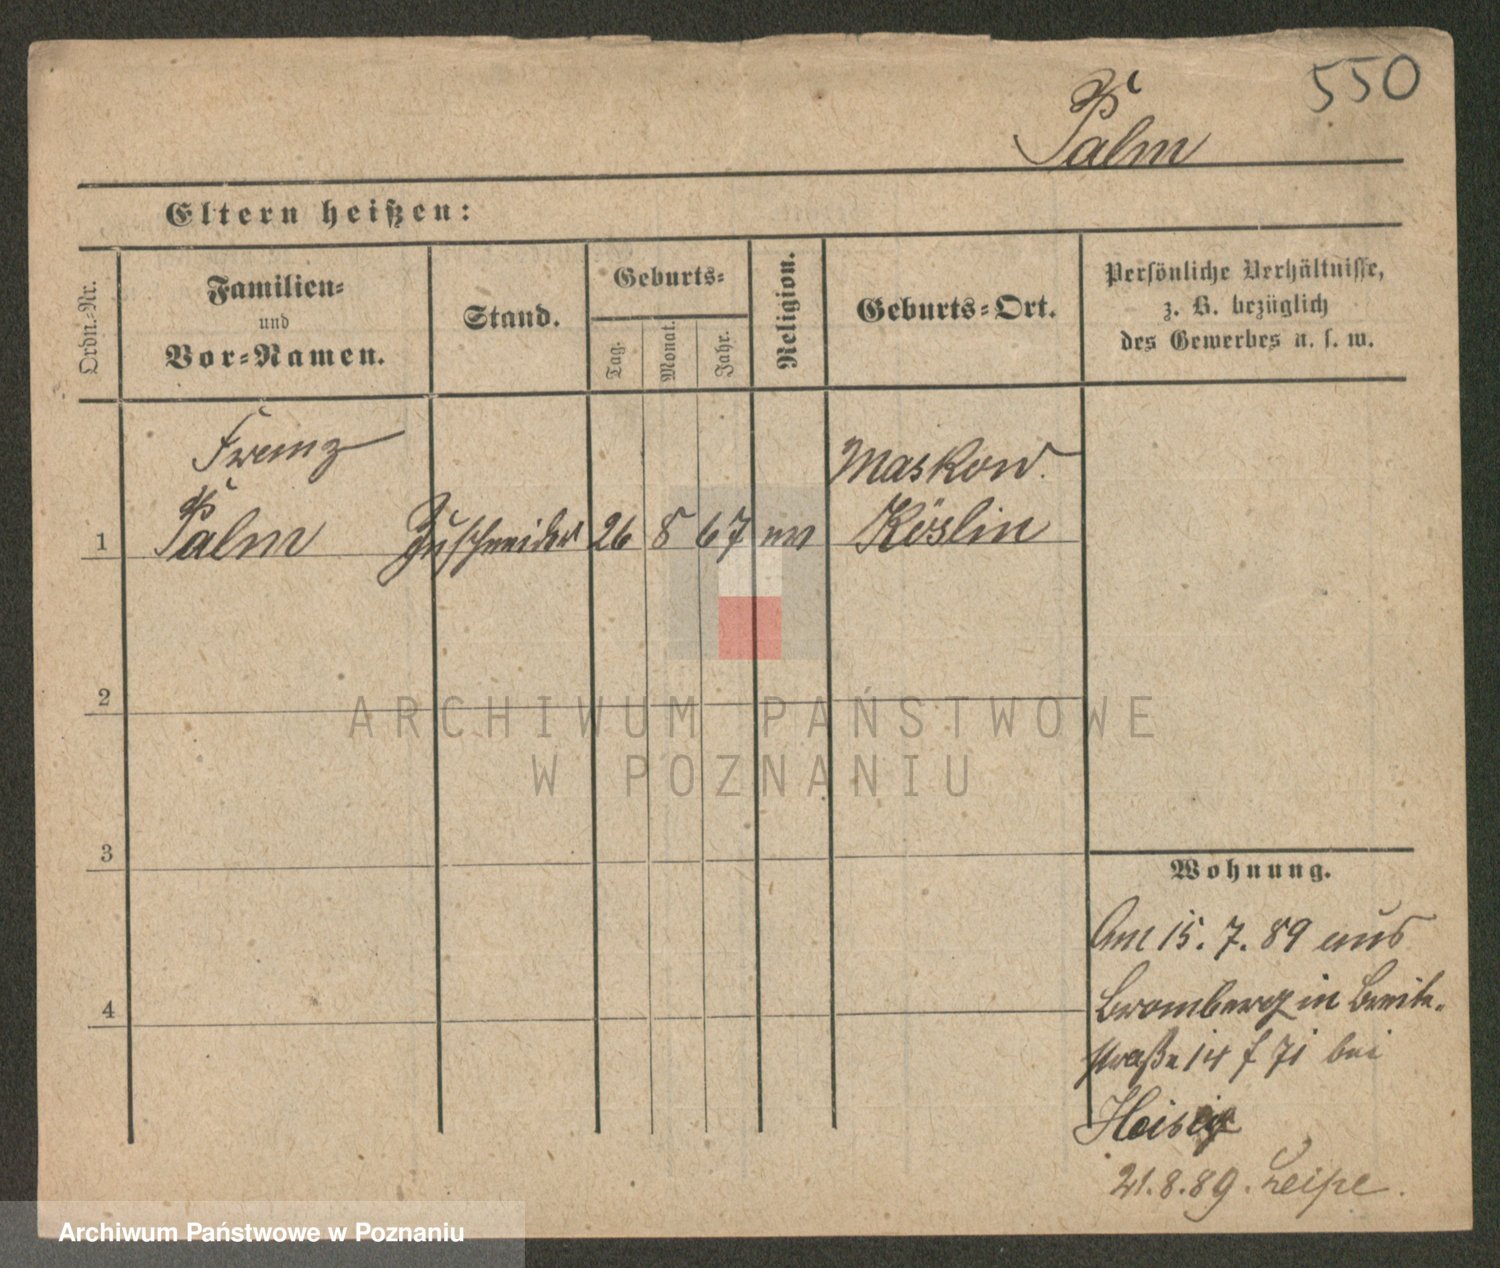 550
Palm
Eltern heißen:
Ordn.-Nr.
Familien-
und
Vor-Namen.
Stand.
Geburts-
Tag.
Monat.
Jahr.
Religion.
Geburts-Ort.
Persönliche Verhältnisse,
z. B. bezüglich
des Gewerbes u. s. w.
Franz
Palm
1
Zuschneider
26
8
67
ev
Maskow.
Köslin
2
3
4
Wohnung.
Am 15. 7. 89 aus
Bromberg in Breite-
straße 14 f 71 bei
Heisig
21.8.89.
ARCHIWUM PAŃSTWOWE
W POZNANIU
Archiwum Państwowe w Poznaniu